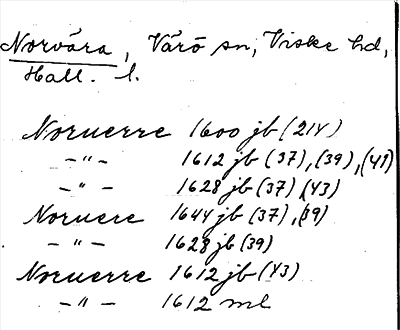 Norvära, Värö sn, Viske hd,
Hall. l.
Noruerre 1600 jb (214)
–"– 1612 jb (37), (39), (41)
–"– 1628 jb (37) (43)
Noruere 1644 jb (37), (39)
–"– 1628 jb (39)
Noruerre 1612 jb (43)
–"– 1612 ml